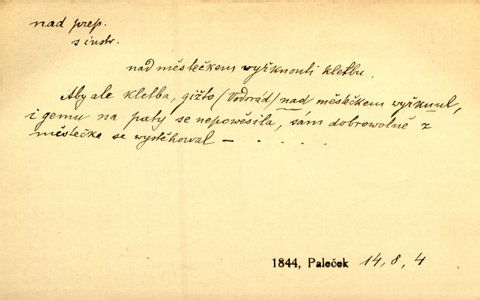 nad prep.
s instr.
nad městečkem vyřknouti kletbu.
Aby ale kletba, gižto (Podorád) nad městečkem wyřknul,
i gemu na paty se nepowěsila, sám dobrowolně z
městečka se wystěhowal – . . . . .
1844, Paleček 14, 8, 4